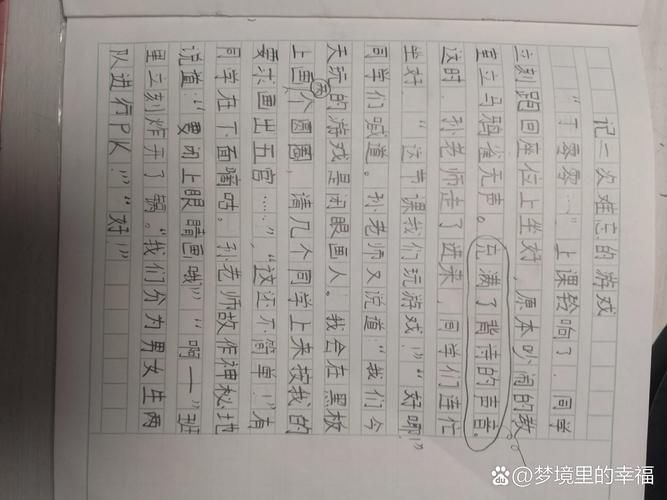 记一次难忘的游戏
“丁零零…”上课铃响了,同学
立刻跑回座位上坐好,原本吵闹的教
室立马鸦雀无声。充满了背待的声音。
这时,孙老师走了进来,同学们连忙
坐好,“这节课我们玩游戏!”“好啊!”
同学们喊道。孙老师又说道:“我们今
天玩的游戏是闭眼画人。我会在黑板
上画个圆圈,请几个同学上来按我的
两
要求画出五官……”,“这还不简单!”有
同学在下面嘀咕。孙老师故作神秘地
说道:“要闭上眼睛画哦!”“啊——”班
里立刻炸开了锅。“我们分为男女生两
队进行PK!”“好!”
@梦境里的幸福